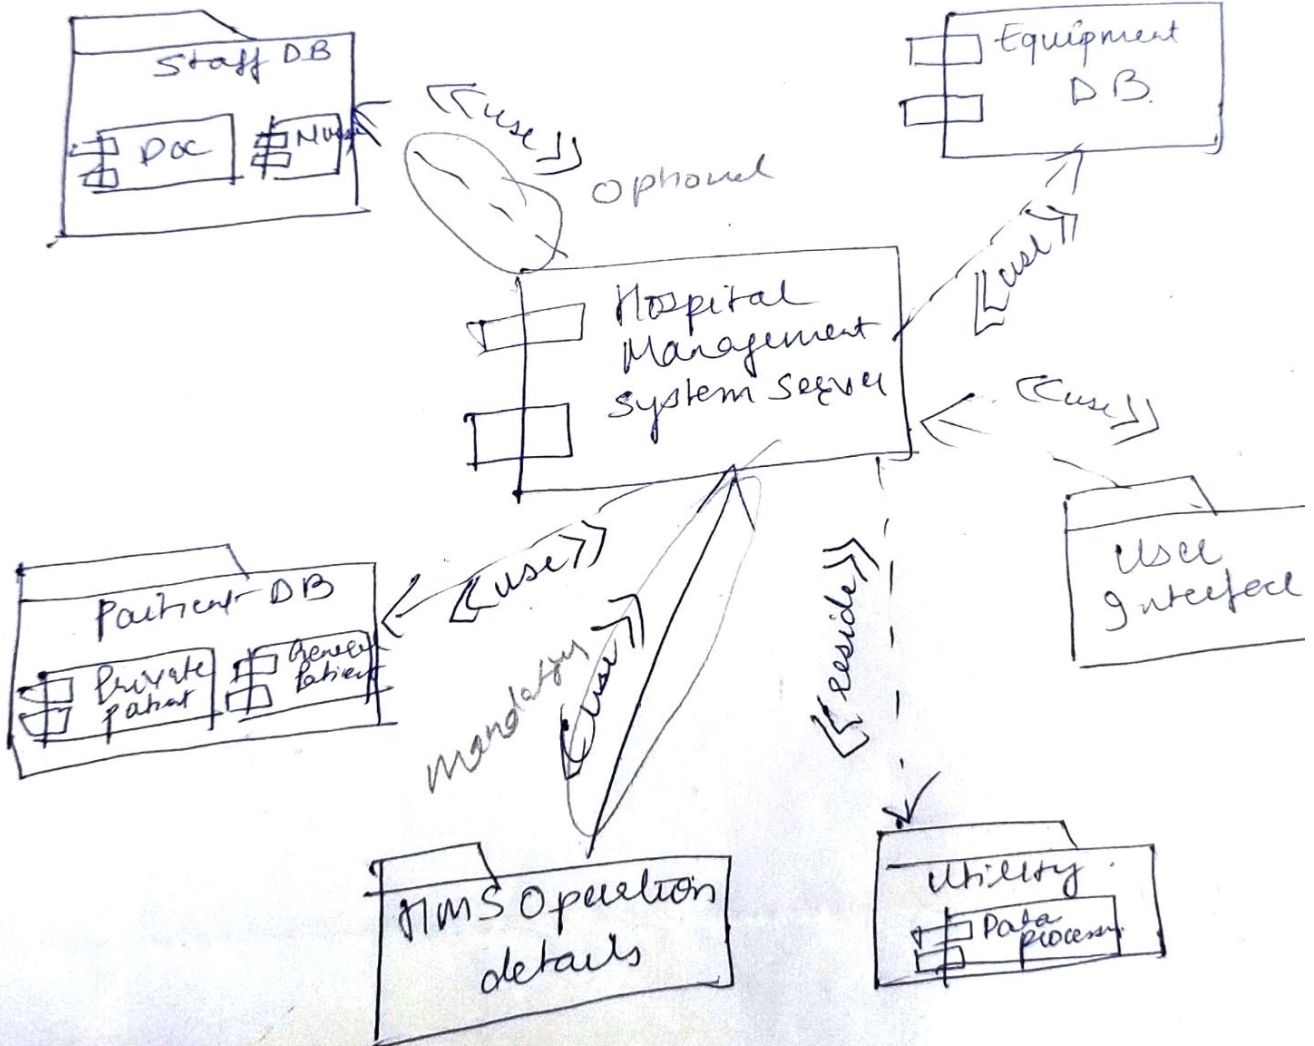 Staff DB
Doc
<<use>>
Optional
Equipment
DB.
<<use>>
Hospital
Management
System Server
<<use>>
User
Interface
Patient DB
Private
patient
General
Patient
<<use>>
mandatory
<<use>>
<<reside>>
HMS Operation
details
Utility
Data
processin